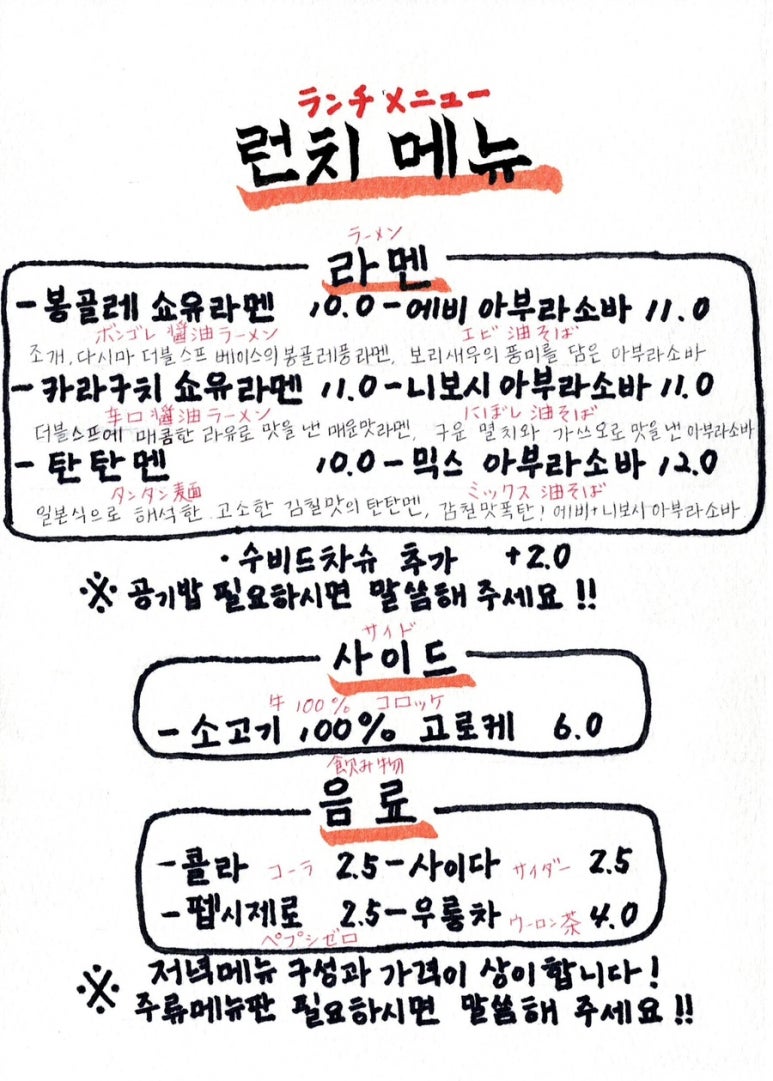 ランチメニュー
런치 메뉴
ラーメン
라멘
- 봉골레 쇼유라멘 10.0 - 에비 아부라소바 11.0
ボンゴレ 醤油ラーメン エビ 油そば
조개, 다시마 더블스프 베이스의 봉골레풍라멘, 보리새우의 풍미를 담은 아부라소바
- 카라구치 쇼유라멘 11.0 - 니보시 아부라소바 11.0
辛口 醤油ラーメン にぼし 油そば
더블스프에 매콤한 라유로 맛을 낸 매운맛라멘, 구운 멸치와 가쓰오로 맛을 낸 아부라소바
- 탄탄멘 10.0 - 믹스 아부라소바 12.0
タンタン麺 ミックス 油そば
일본식으로 해석한 고소한 감칠맛의 탄탄멘, 감칠맛폭탄! 에비+니보시아부라소바
· 수비드차슈 추가 +2.0
※ 공기밥 필요하시면 말씀해 주세요!!
サイド
사이드
牛100% コロッケ
- 소고기 100% 고로케 6.0
飲み物
음료
- 콜라 コーラ 2.5 - 사이다 サイダー 2.5
- 펩시제로 2.5 - 우롱차 ウーロン茶 4.0
ペプシゼロ
※ 저녁메뉴 구성과 가격이 상이합니다!
주류메뉴판 필요하시면 말씀해 주세요!!